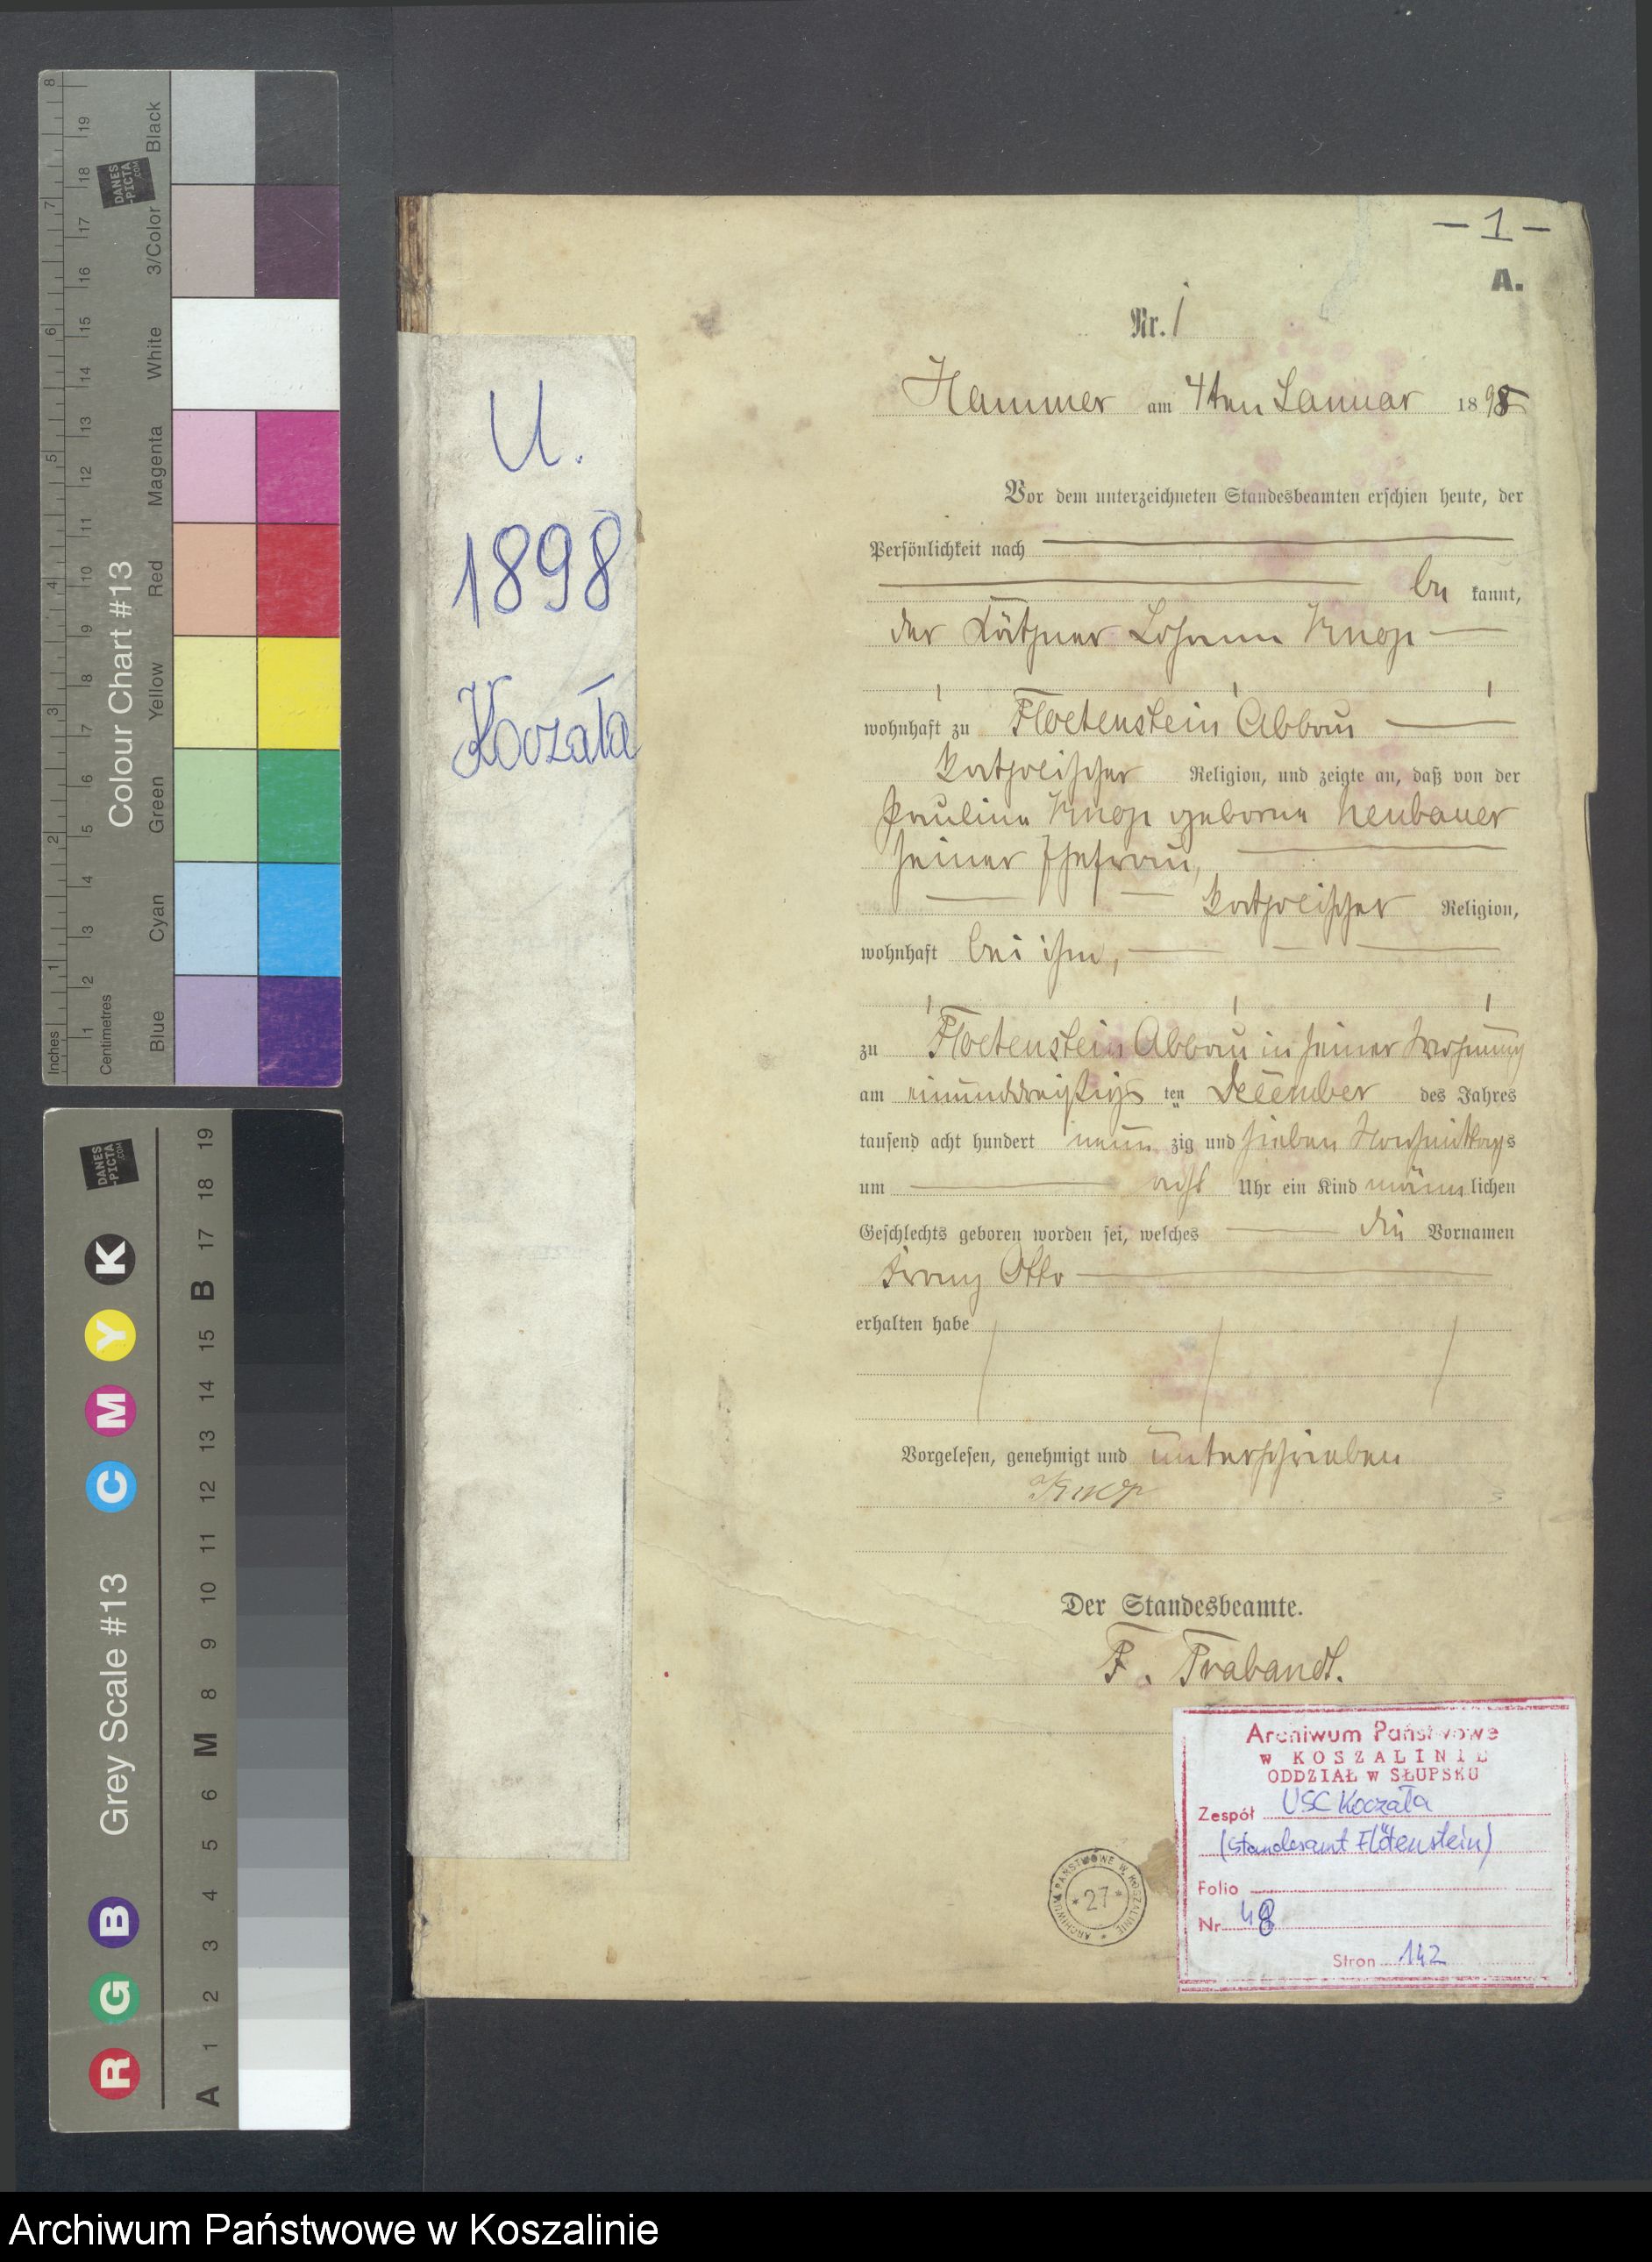 8
7
6
5
4
3
2
1
Inches
19
18
17
16
15
14
13
12
11
10
9
8
7
6
5
4
3
2
1
Centimetres
Colour Chart #13
DANES
-PICTA
.COM
Black
3/Color
White
Magenta
Red
Yellow
Green
Cyan
Blue
Grey Scale #13
DANES
-PICTA
.COM
K
Y
M
C
B
G
R
19
18
17
B
15
14
13
12
11
10
9
8
M
6
5
4
3
2
1
A
U.
1898
Koczała
– 1 –
A.
Nr. 1
Hammer am 4ten Januar 1898
Vor dem unterzeichneten Standesbeamten erschien heute, der
Persönlichkeit nach
be kannt,
der Käthner Johann Knop
wohnhaft zu Floetenstein Abbau
katholischer Religion, und zeigte an, daß von der
Pauline Knop geborne Neubauer
seiner Ehefrau,
katholischer Religion,
wohnhaft bei ihm,
zu Floetenstein Abbau in seiner Wohnung
am einunddreißigs ten December des Jahres
tausend acht hundert neun zig und sieben Nachmittags
um acht Uhr ein Kind männ lichen
Geschlechts geboren worden sei, welches die Vornamen
Franz Otto
erhalten habe
Vorgelesen, genehmigt und unterschrieben
Knop
Der Standesbeamte.
F. Trabandt.
Archiwum Państwowe
w KOSZALINIE
ODDZIAŁ w SŁUPSKU
Zespół USC Koczała
(Standesamt Flötenstein)
Folio
Nr 48
Stron 142
ARCHIWUM PAŃSTWOWE W KOSZALINIE
* 27 *
Archiwum Państwowe w Koszalinie